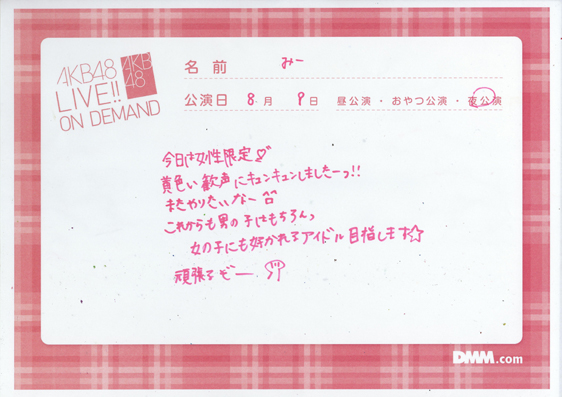 AKB48
LIVE!!
ON DEMAND
AKB
48
名前 みー
公演日 8月9日 昼公演・おやつ公演・夜公演
今日は女性限定♡
黄色い歓声にキュンキュンしましたーっ!!
またやりたいなー
これからも男の子はもちろんっ
女の子にも好かれるアイドル目指します☆
頑張るぞー
DMM.com